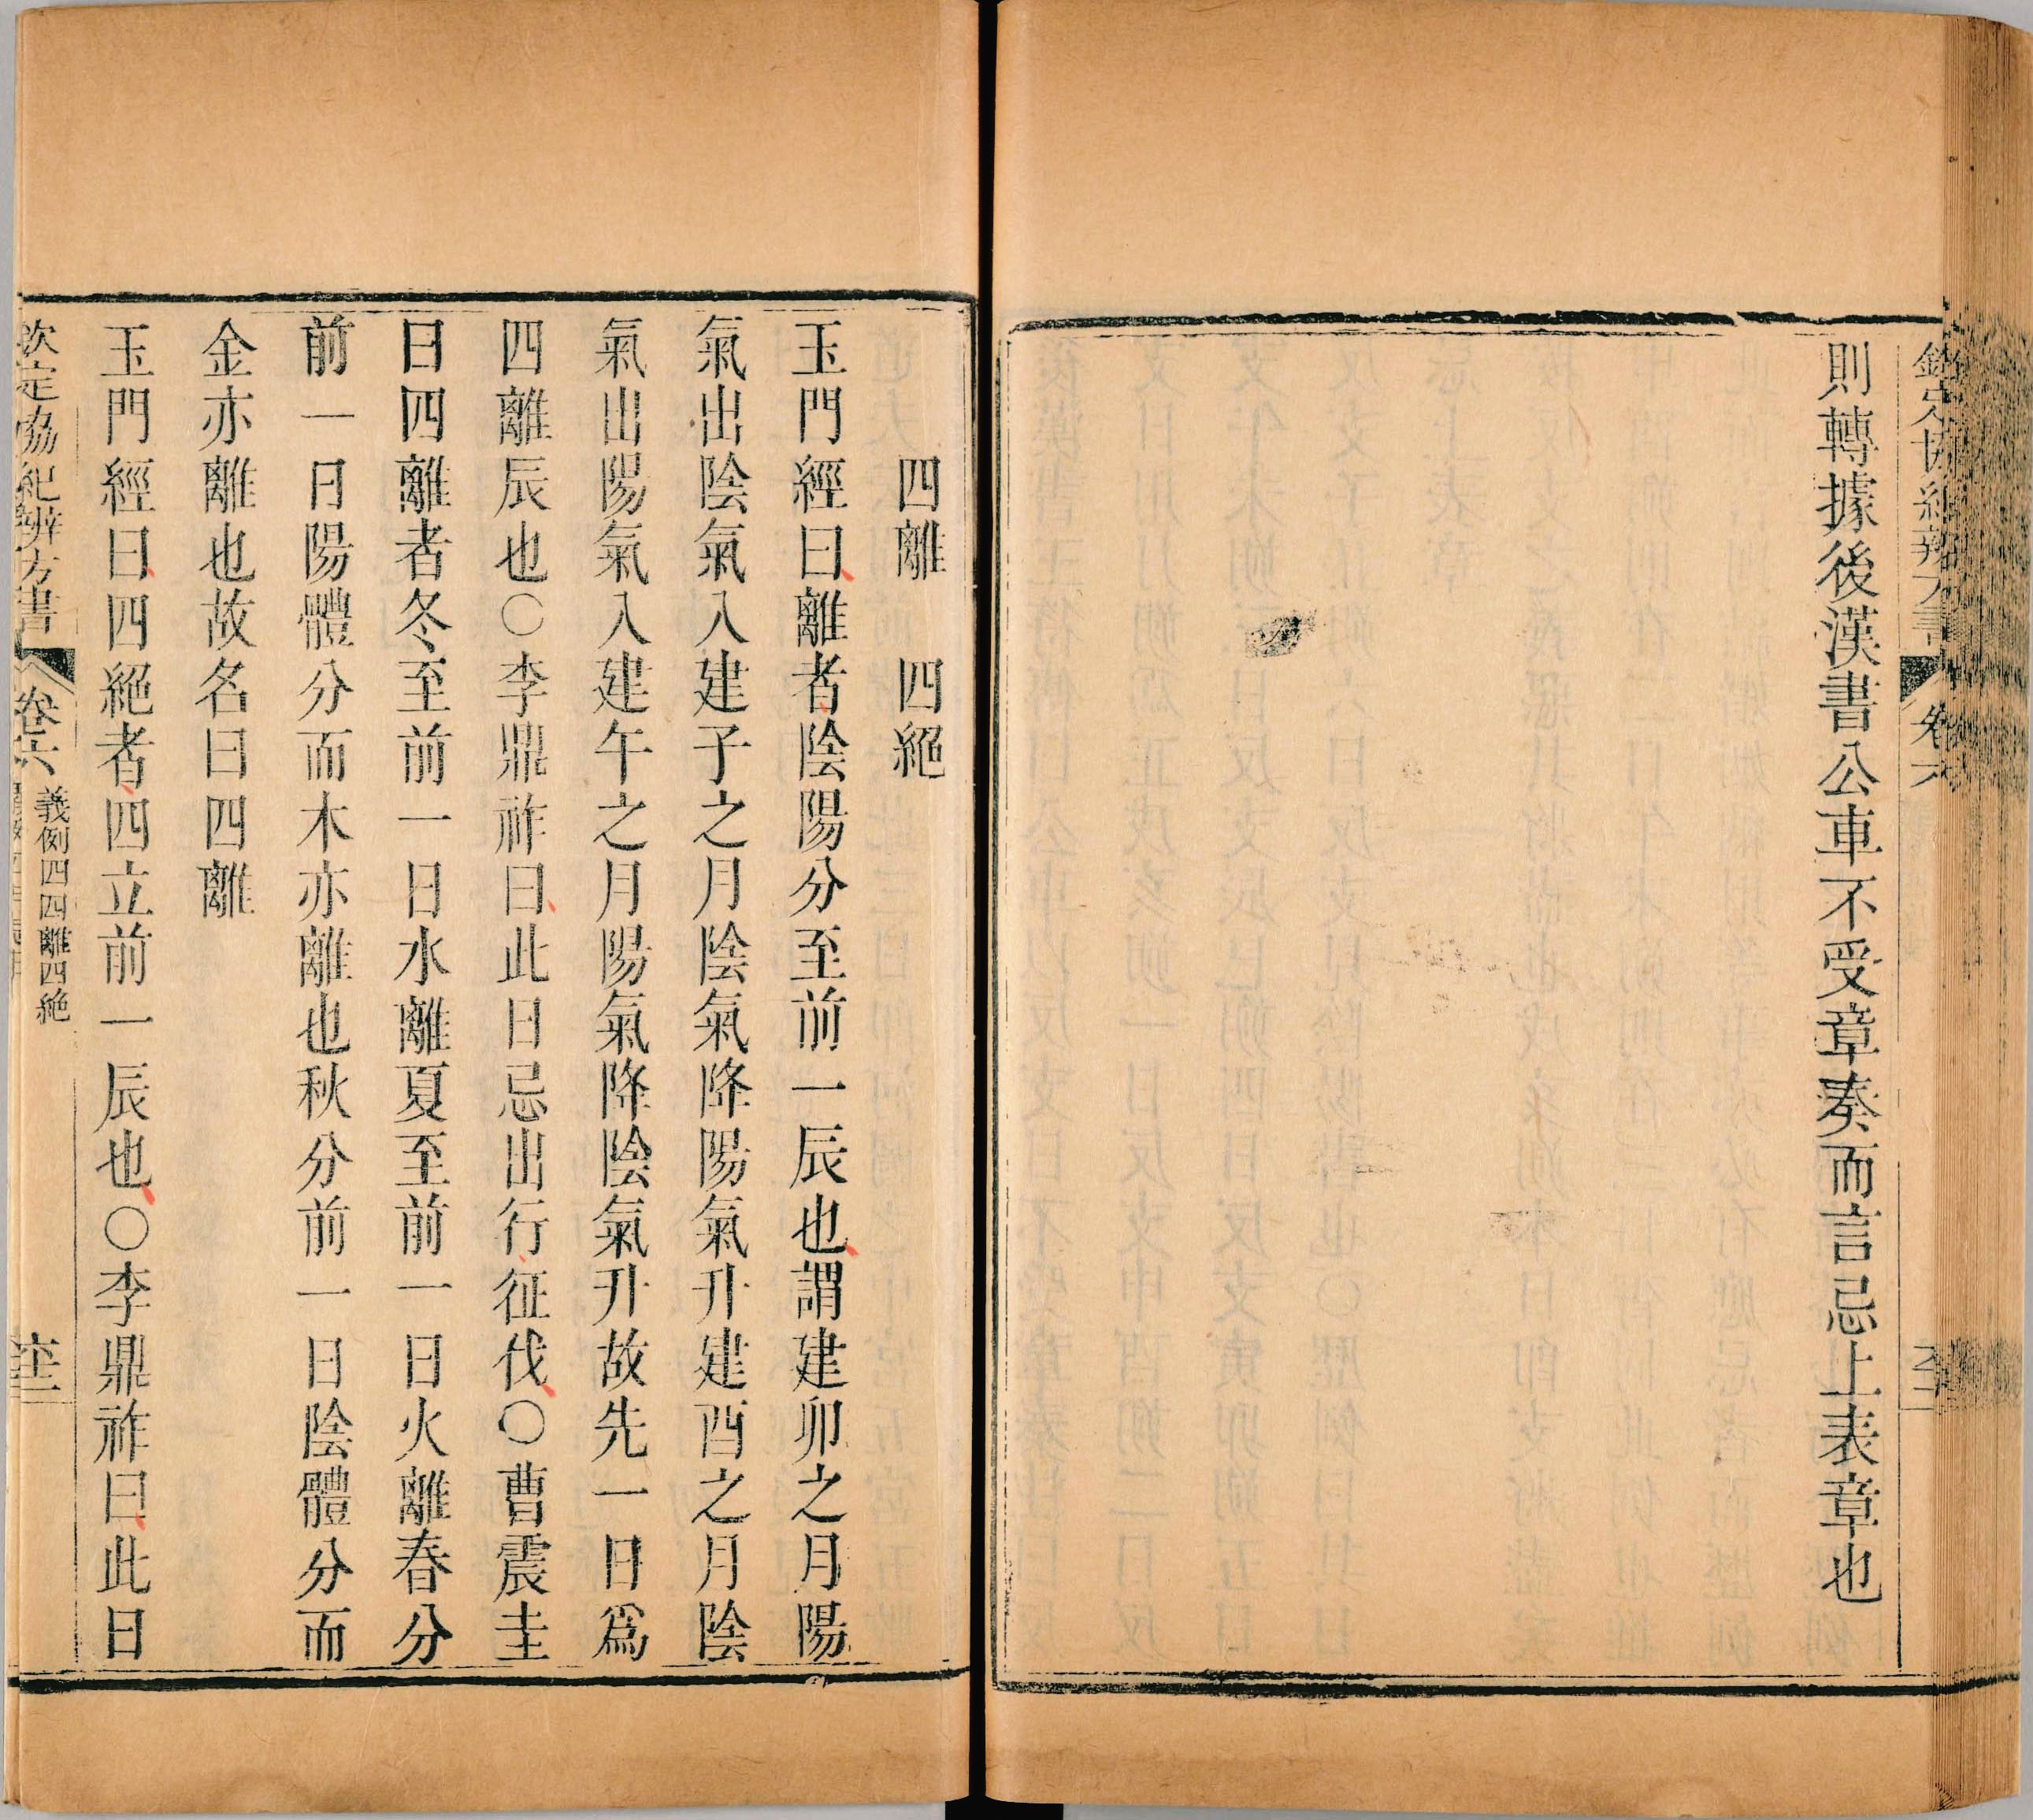 卷六
則轉據後漢書公車不受章奏而言忌上表章也
四離 四絕
玉門經曰離者陰陽分至前一辰也謂建卯之月陽
氣出陰氣入建子之月陰氣降陽氣升建酉之月陰
氣出陽氣入建午之月陽氣降陰氣升故先一日爲
四離辰也○李鼎祚曰此日忌出行征伐○曹震圭
曰四離者冬至前一日水離夏至前一日火離春分
前一日陽體分而木亦離也秋分前一日陰體分而
金亦離也故名曰四離
玉門經曰四絕者四立前一辰也○李鼎祚曰此日
欽定協紀辨方書 卷六 義例四四離四絕